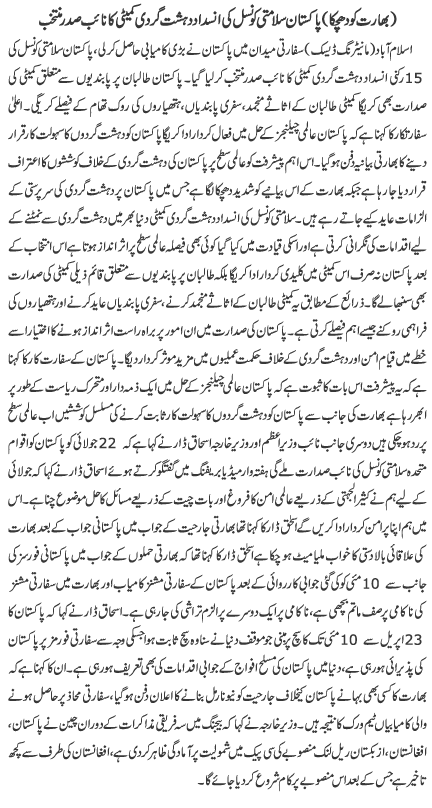 (بھارت کو دھچکا) پاکستان سلامتی کونسل کی انسداد دہشت گردی کمیٹی کا نائب صدر منتخب
اسلام آباد (مانیٹرنگ ڈیسک) سفارتی میدان میں پاکستان نے بڑی کامیابی حاصل کر لی، پاکستان سلامتی کونسل کی
15 رکنی انسداد دہشت گردی کمیٹی کا نائب صدر منتخب کر لیا گیا۔ پاکستان طالبان پر پابندیوں سے متعلق کمیٹی کی
صدارت بھی کریگا کمیٹی طالبان کے اثاثے منجمد، سفری پابندیاں، ہتھیاروں کی روک تھام کے فیصلے کریگی۔ اعلیٰ
سفارتکار کا کہنا ہے کہ پاکستان عالمی چیلنجز کے حل میں فعال کردار ادا کریگا پاکستان کو دہشت گردوں کا سہولت کار قرار
دینے کا بھارتی بیانیہ دفن ہو گیا۔ اس اہم پیشرفت کو عالمی سطح پر پاکستان کی دہشت گردی کے خلاف کوششوں کا اعتراف
قرار دیا جا رہا ہے جبکہ بھارت کے اس بیانیے کو شدید دھچکا لگا ہے جس میں پاکستان پر دہشت گردی کی سرپرستی کے
الزامات عاید کیے جاتے رہے ہیں۔ سلامتی کونسل کی انسداد دہشت گردی کمیٹی دنیا بھر میں دہشت گردی سے نمٹنے کے
لیے اقدامات کی نگرانی کرتی ہے اور اسکی قیادت میں کیا گیا کوئی بھی فیصلہ عالمی سطح پر اثر انداز ہوتا ہے اس انتخاب کے
بعد پاکستان نہ صرف اس کمیٹی میں کلیدی کردار ادا کریگا بلکہ طالبان پر پابندیوں سے متعلق قائم ذیلی کمیٹی کی صدارت
بھی سنبھالے گا۔ ذرائع کے مطابق یہ کمیٹی طالبان کے اثاثے منجمد کرنے، سفری پابندیاں عاید کرنے اور ہتھیاروں کی
فراہمی روکنے جیسے اہم فیصلے کرتی ہے۔ پاکستان کی صدارت میں ان امور پر براہ راست اثر انداز ہونے کا اختیار اسے
خطے میں قیام امن اور دہشت گردی کے خلاف حکمت عملیوں میں مزید موثر کردار دیگا۔ پاکستان کے سفارت کار کا کہنا
ہے کہ یہ پیشرفت اس بات کا ثبوت ہے کہ پاکستان عالمی چیلنجز کے حل میں ایک ذمہ دار اور متحرک ریاست کے طور پر
ابھر رہا ہے بھارت کی جانب سے پاکستان کو دہشت گردوں کا سہولت کار ثابت کرنے کی مسلسل کوششیں اب عالمی سطح
پر رد ہو چکی ہیں دوسری جانب نائب وزیراعظم اور وزیر خارجہ اسحاق ڈار نے کہا ہے کہ 22 جولائی کو پاکستان کو اقوام
متحدہ سلامتی کونسل کی نائب صدارت ملے گی ہفتہ وار میڈیا بریفنگ میں گفتگو کرتے ہوئے اسحاق ڈار نے کہا کہ جولائی
کے لیے ہم نے کثیر الجہتی کے ذریعے عالمی امن کا فروغ اور بات چیت کے ذریعے مسائل کا حل موضوع چنا ہے۔ اس
میں ہم اپنا پر امن کردار ادا کریں گے اسحٰق ڈار کا کہنا تھا بھارتی جارحیت کے جواب میں پاکستانی جواب کے بعد بھارت
کی علاقائی بالادستی کا خواب ملیا میٹ ہو چکا ہے اسحٰق ڈار کا کہنا تھا کہ بھارتی حملوں کے جواب میں پاکستانی فورسز کی
جانب سے 10 مئی کو کی گئی جوابی کارروائی کے بعد پاکستان کے سفارتی مشنز کامیاب اور بھارت میں سفارتی مشنز
کی ناکامی پر صف ماتم بچھی ہے، ناکامی پر ایک دوسرے پر الزام تراشی کی جا رہی ہے۔ اسحاق ڈار نے کہا کہ پاکستان کا
23 اپریل سے 10 مئی تک کا سچ پر مبنی جو موقف دنیا نے سنا وہ سچ ثابت ہوا جسکی وجہ سے سفارتی فورمز پر پاکستان
کی پذیرائی ہو رہی ہے، دنیا میں پاکستان کی مسلح افواج کے جوابی اقدامات کی بھی تعریف ہو رہی ہے۔ ان کا کہنا ہے کہ
بھارت کا کسی بھی بہانے پاکستان کیخلاف جارحیت کو نیو نارمل بنانے کا اعلان دفن ہو گیا، سفارتی محاذ پر حاصل ہونے
والی کامیابیاں ٹیم ورک کا نتیجہ ہیں۔ وزیر خارجہ نے کہا کہ بیجنگ میں سہ فریقی مذاکرات کے دوران چین نے پاکستان،
افغانستان، ازبکستان ریل لنک منصوبے کی سی پیک میں شمولیت پر آمادگی ظاہر کر دی ہے، افغانستان کی طرف سے کچھ
تاخیر ہے جس کے بعد اس منصوبے پر کام شروع کر دیا جائے گا۔